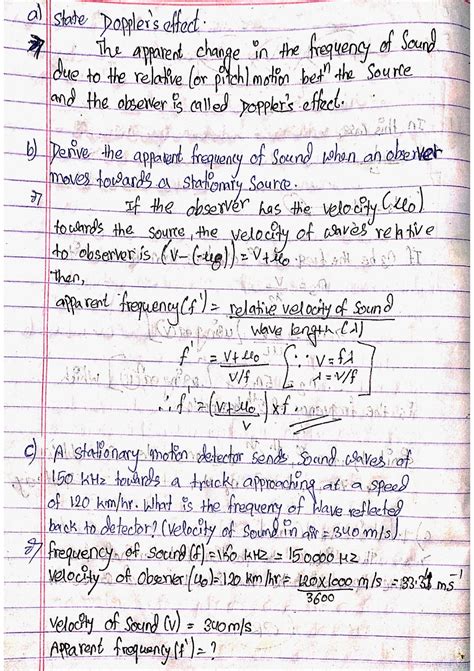 a) State Doppler's effect.
⇒ The apparent change in the frequency of sound
due to the relative (or pitch) motion betⁿ the source
and the observer is called Doppler's effect.
b) Derive the apparent frequency of sound when an observer
moves towards a stationary source.
⇒ If the observer has the velocity (u₀)
towards the source, the velocity of waves relative
to observer is (v-(-u₀)) = v+u₀
Then,
apparent frequency (f') = relative velocity of sound
wave length (λ)
f' = v+u₀ [∵ v=fλ
v/f λ=v/f]
∴ f' = (v+u₀) x f.
v
c) A stationary motion detector sends sound waves of
150 KHz towards a truck approaching at a speed
of 120 km/hr. What is the frequency of wave reflected
back to detector? (velocity of sound in air = 340 m/s).
⇒ frequency of sound (f) = 150 KHZ = 150000 HZ
velocity of Observer (u₀) = 120 km/hr = 120x1000 m/s = 33.34 ms⁻¹
3600
velocity of sound (v) = 340m/s
Apparent frequency (f') = ?